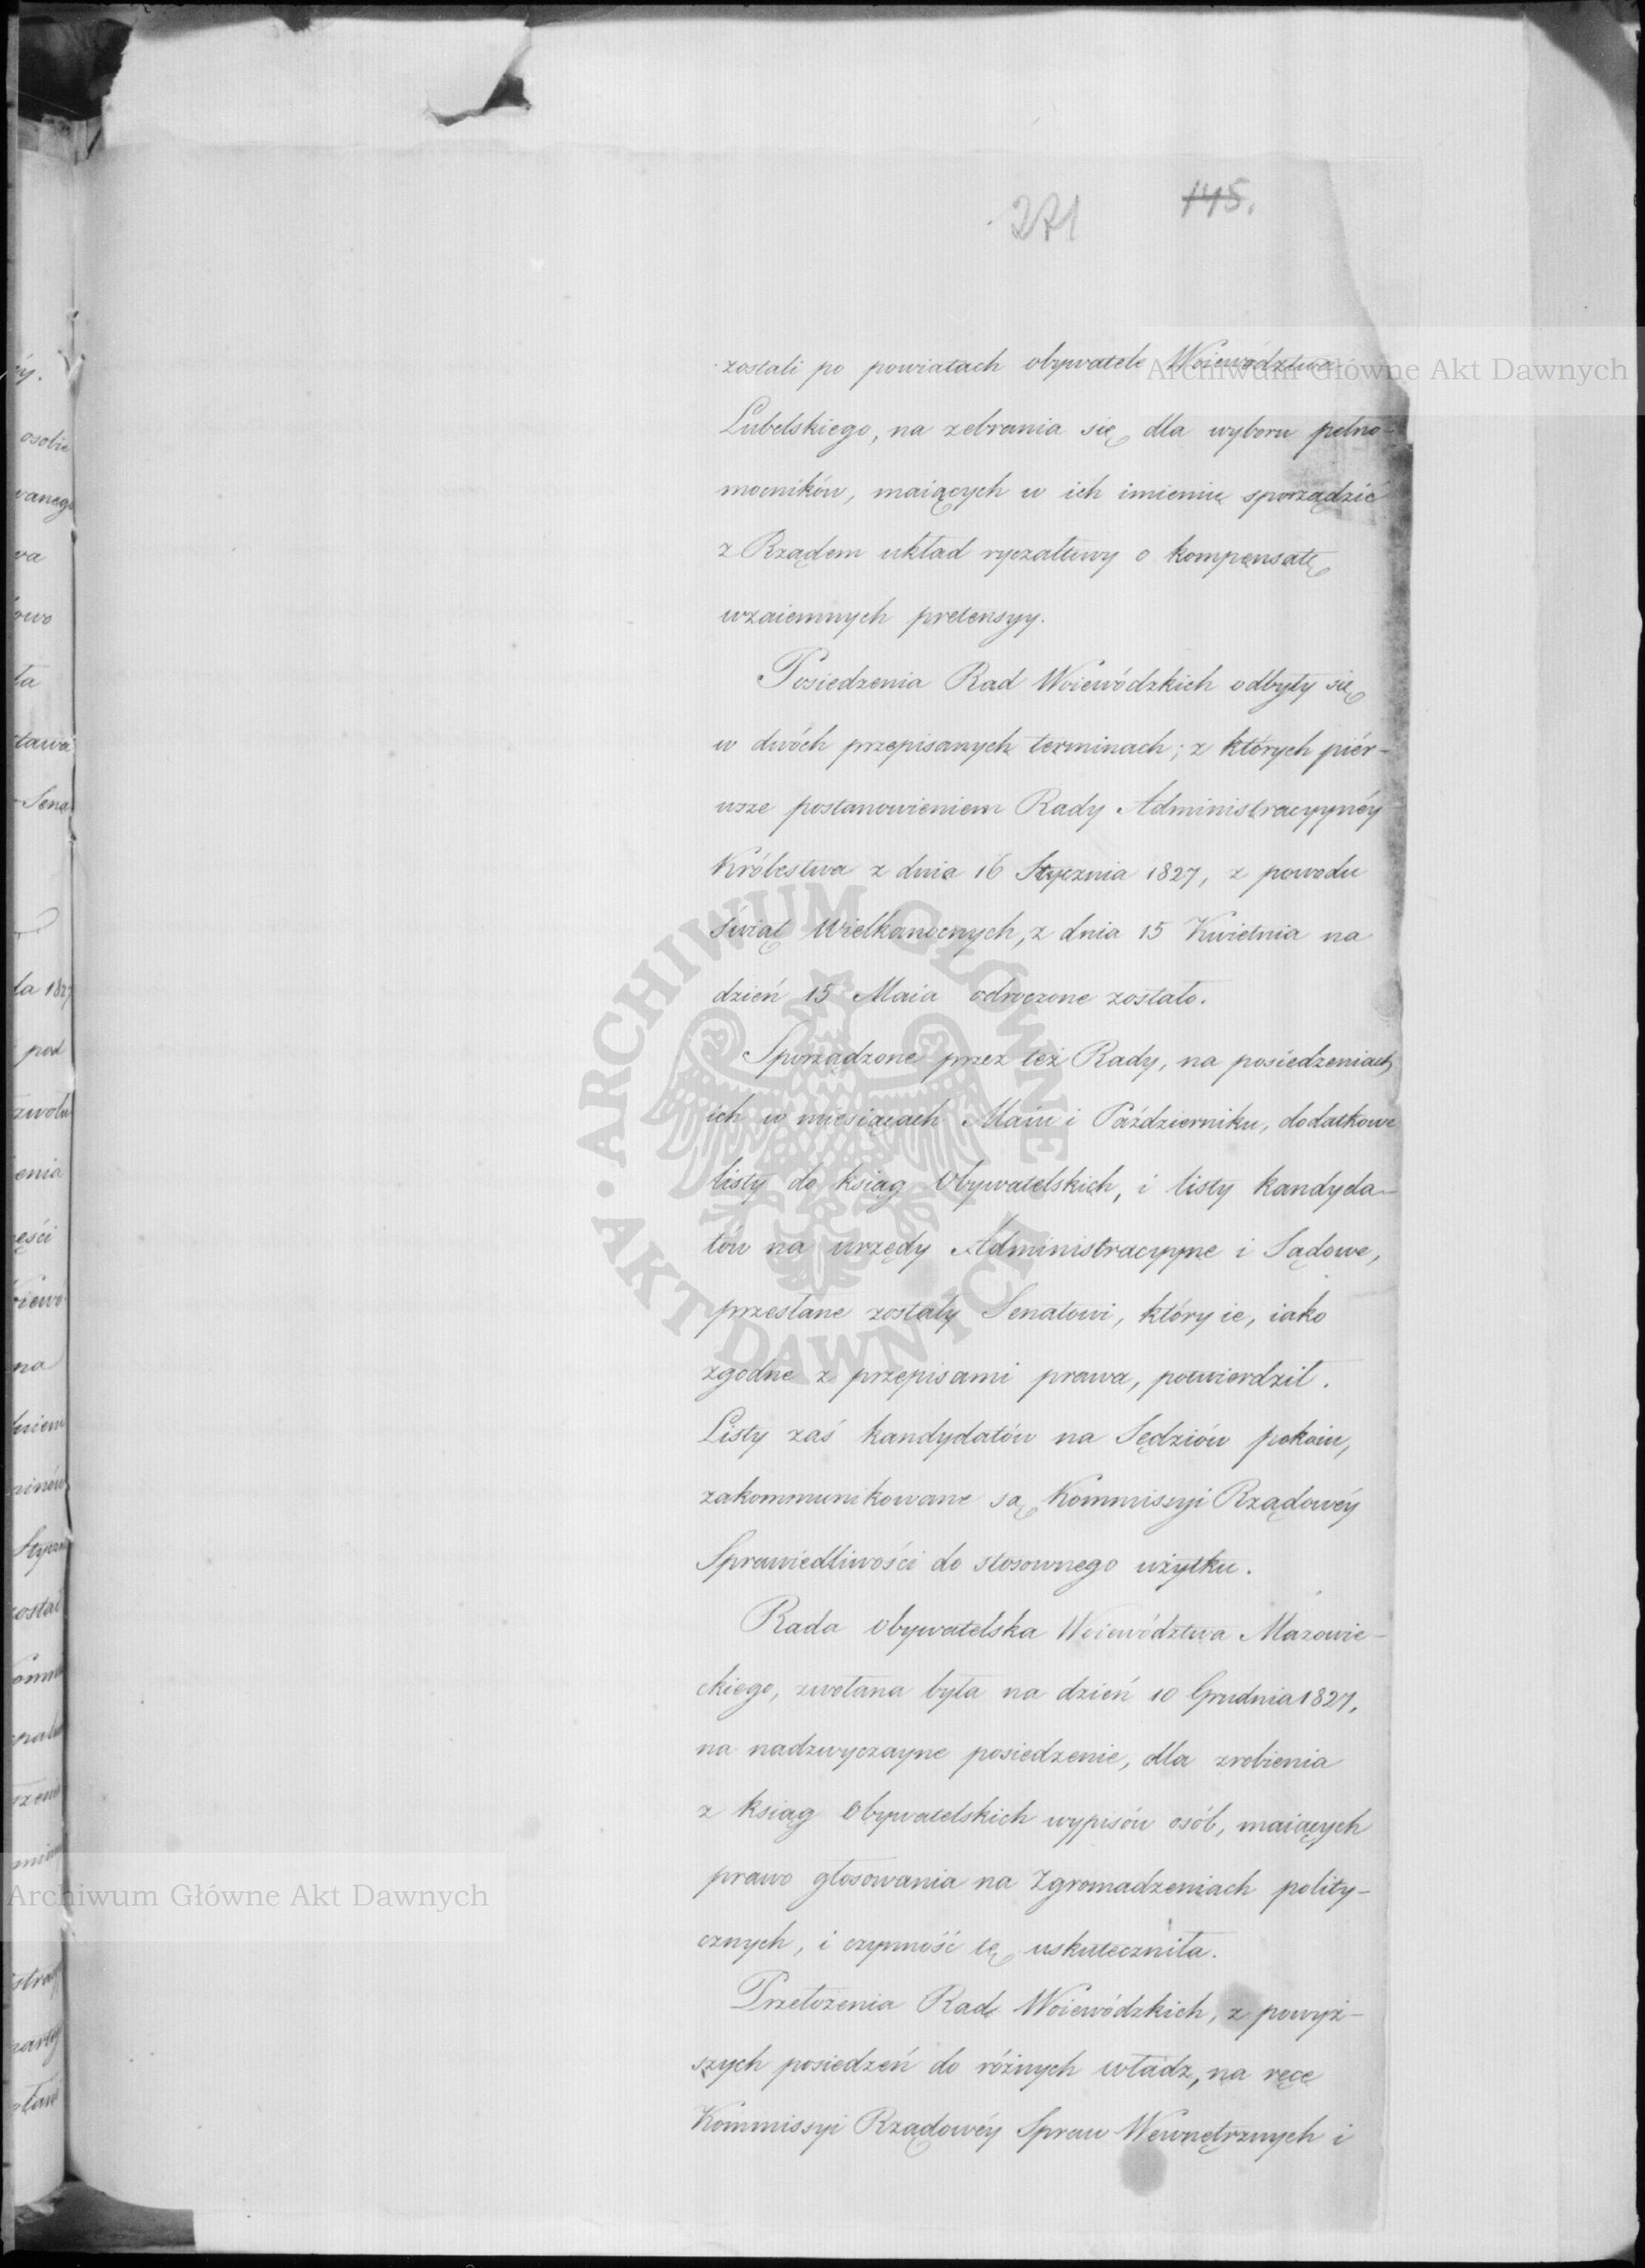 271
145.
zostali po powiatach obywatele Woiewództwa
Archiwum Główne Akt Dawnych
Lubelskiego, na zebrania się dla wyboru pełno-
mocników, maiących w ich imieniu sporządzić
z Rządem układ ryczałtowy o kompensatę
wzaiemnych pretensyy.
Posiedzenia Rad Woiewódzkich odbyły się
w dwóch przepisanych terminach; z których piér-
wsze postanowieniem Rady Administracyynéy
Królestwa z dnia 16 Stycznia 1827, z powodu
świąt Wielkanocnych, z dnia 15 Kwietnia na
dzień 15 Maia odroczone zostało.
Sporządzone przez też Rady, na posiedzeniach
ich w miesiącach Maiu i Październiku, dodatkowe
listy do ksiąg Obywatelskich, i listy kandyda-
tów na urzędy Administracyyne i Sądowe,
przesłane zostały Senatowi, który ie, iako
zgodne z przepisami prawa, potwierdził.
Listy zaś kandydatów na Sędziów pokoiu,
zakommunikowane są Kommissyi Rządowéy
Sprawiedliwości do stosownego użytku.
Rada Obywatelska Woiewództwa Mazowie-
ckiego, zwołana była na dzień 10 Grudnia 1827,
na nadzwyczayne posiedzenie, dla zrobienia
z ksiąg Obywatelskich wypisów osób, maiących
prawo głosowania na Zgromadzeniach polity-
cznych, i czynność tę uskuteczniła.
Przełożenia Rad Woiewódzkich, z powyż-
szych posiedzeń do różnych władz, na ręce
Kommissyi Rządowéy Spraw Wewnętrznych i
ARCHIWUM GŁÓWNE AKT DAWNYCH
Archiwum Główne Akt Dawnych
osobie
wanego
wa
owo
ła
stawa
Sena
la 1827
pod
zwolu
enia
ęści
na